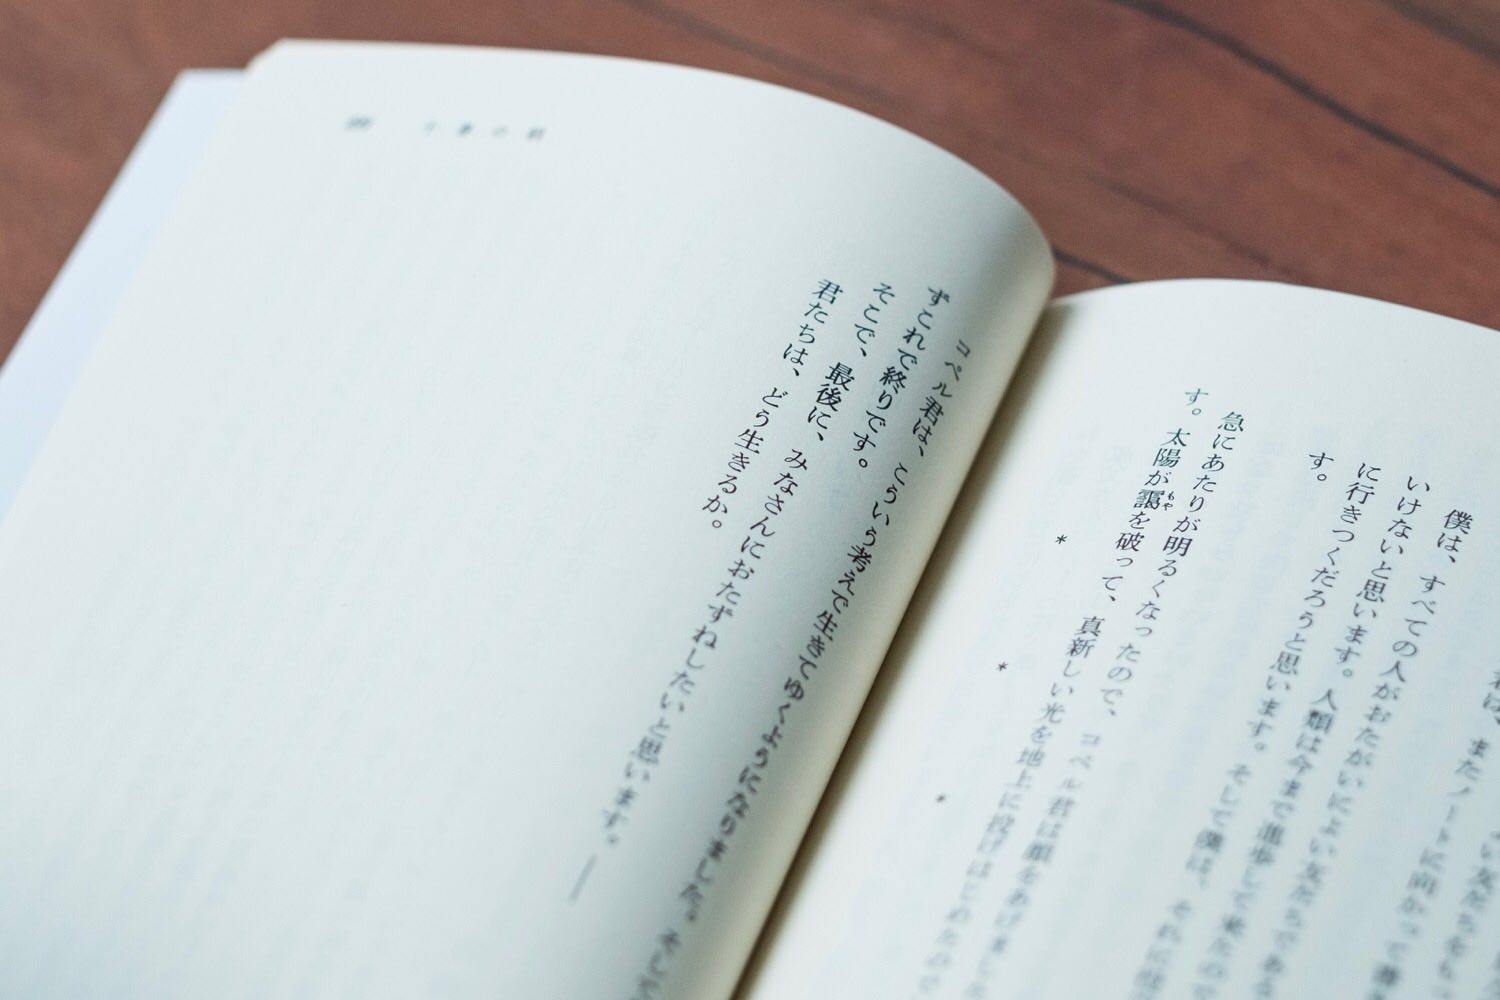 僕は、すべての人がおたがいによい友だちである
いけないと思います。人類は今まで進歩して来たの
に行きつくだろうと思います。そして僕は、それに
す。
急にあたりが明るくなったので、コペル君は顔をあげました
す。太陽が靄を破って、真新しい光を地上に投げはじめたので
もや
*
*
*
コペル君は、こういう考えで生きてゆくようになりました。そして
ずこれで終りです。
そこで、最後に、みなさんにおたずねしたいと思います。――
君たちは、どう生きるか。